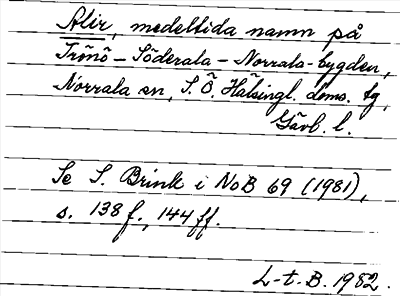 Alir, medeltida namn på
Trönö – Söderala – Norrala-bygden,
Norrala sn, S. Ö. Hälsingl. doms. tg,
Gävl. l.
Se S. Brink i NoB 69 (1981),
s. 138 f., 144 ff.
L-t. B. 1982.